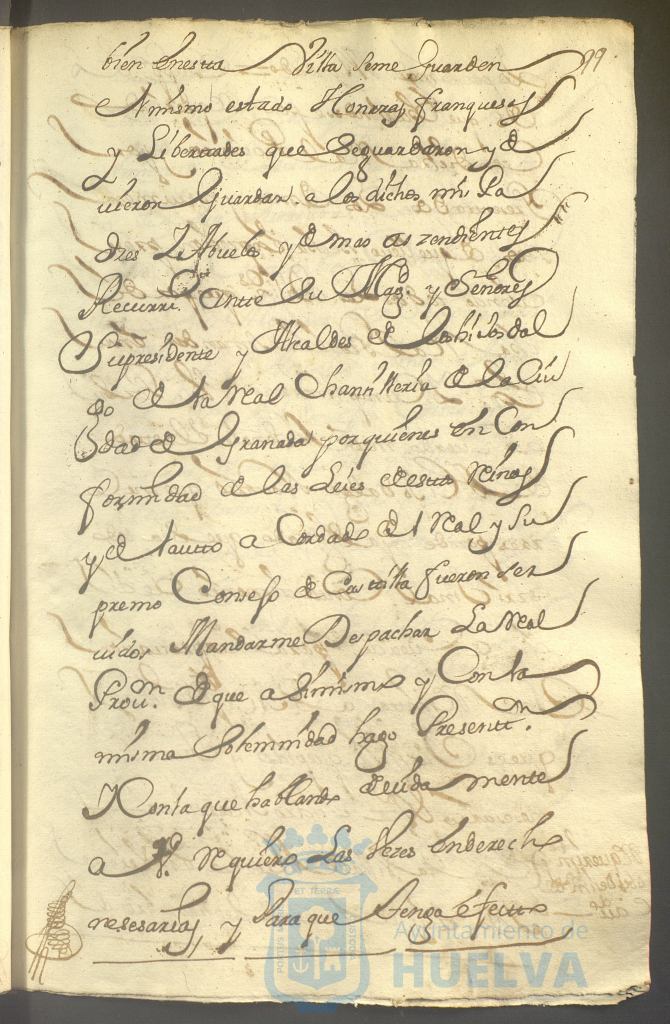 99
bien en esta Villa se me Guarden
el mismo estado Honrras franquesas
y Libertades que se guardaron y de
uieron Guardar a los dichos mis Pa
dres Y Abuelos y demas aszendientes
Recurri Ante Su Magd y Señores
Supresidente y Alcaldes de los hijosdal
go de la Real Chansilleria de la Ciu
dad de Granada por quienes en Con
formidad de las Leies destos Reinos
y del autto a Cordado del Real y Su
premo Consejo de Castilla fueron ser
uidos Mandarme Despachar La Real
Prouon. de que a Simismo y Con la
misma Solemnidad hago Presenttn.
Y Con la que hablando deuida mente
a V. Requiero Las Vezes en derecho
nesesarias y Para que tenga efectto
Ayuntamiento de
HUELVA